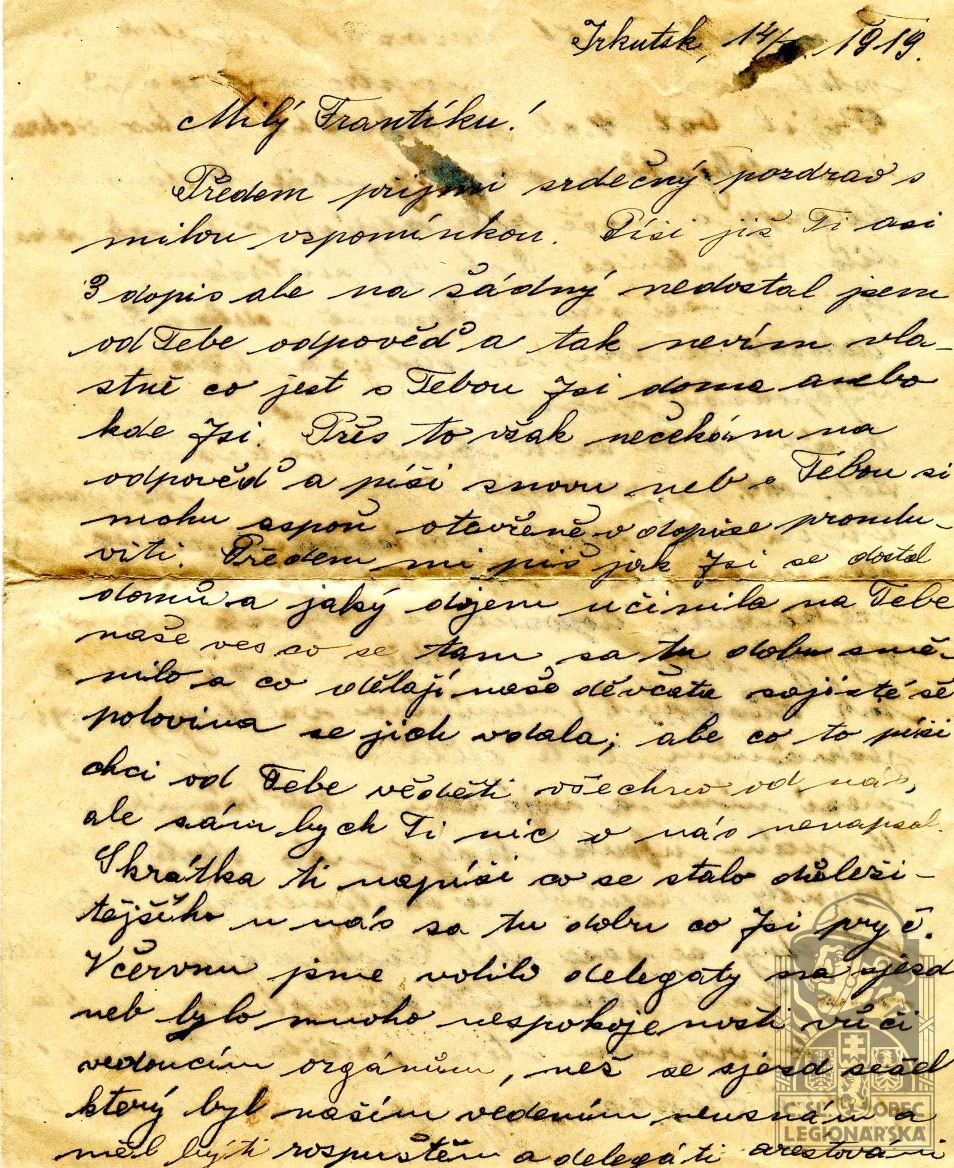 Irkutsk, 14/ 1919.
Milý Frantíku!
Předem prijmi srdečný pozdrav s
milou vzpomínkou. Píši již Ti asi
3 dopis ale na žádný nedostal jsem
od Tebe odpověď a tak nevím vla-
stně co jest s Tebou Jsi doma anebo
kde Jsi. Přes to však nečekám na
odpověď a píši znovu neb s Tebou si
mohu aspoň otevřeně v dopise promlu-
viti. Předem mi piš jak Jsi se dostal
domů a jaký dojem učinila na Tebe
naše ves co se tam za tu dobu změ-
nilo a co dělají naše děvčata zajisté
polovina se jich vdala; abe co to píši
chci od Tebe věděti všechno od nás,
ale sám bych Ti nic o nás nenapsal.
Zkrátka ti napíši co se stalo důleži-
tějšího u nás za tu dobu co Jsi pryč.
V červnu jsme volili delegáty na sjezd
neb bylo mnoho nespokojenosti vůči
vedoucím orgánům, než se sjezd sešel
který byl naším vedením neuznám a
měl býti rozpuštěn a delegáti arestováni
ČSL OBEC
LEGIONÁŘSKÁ